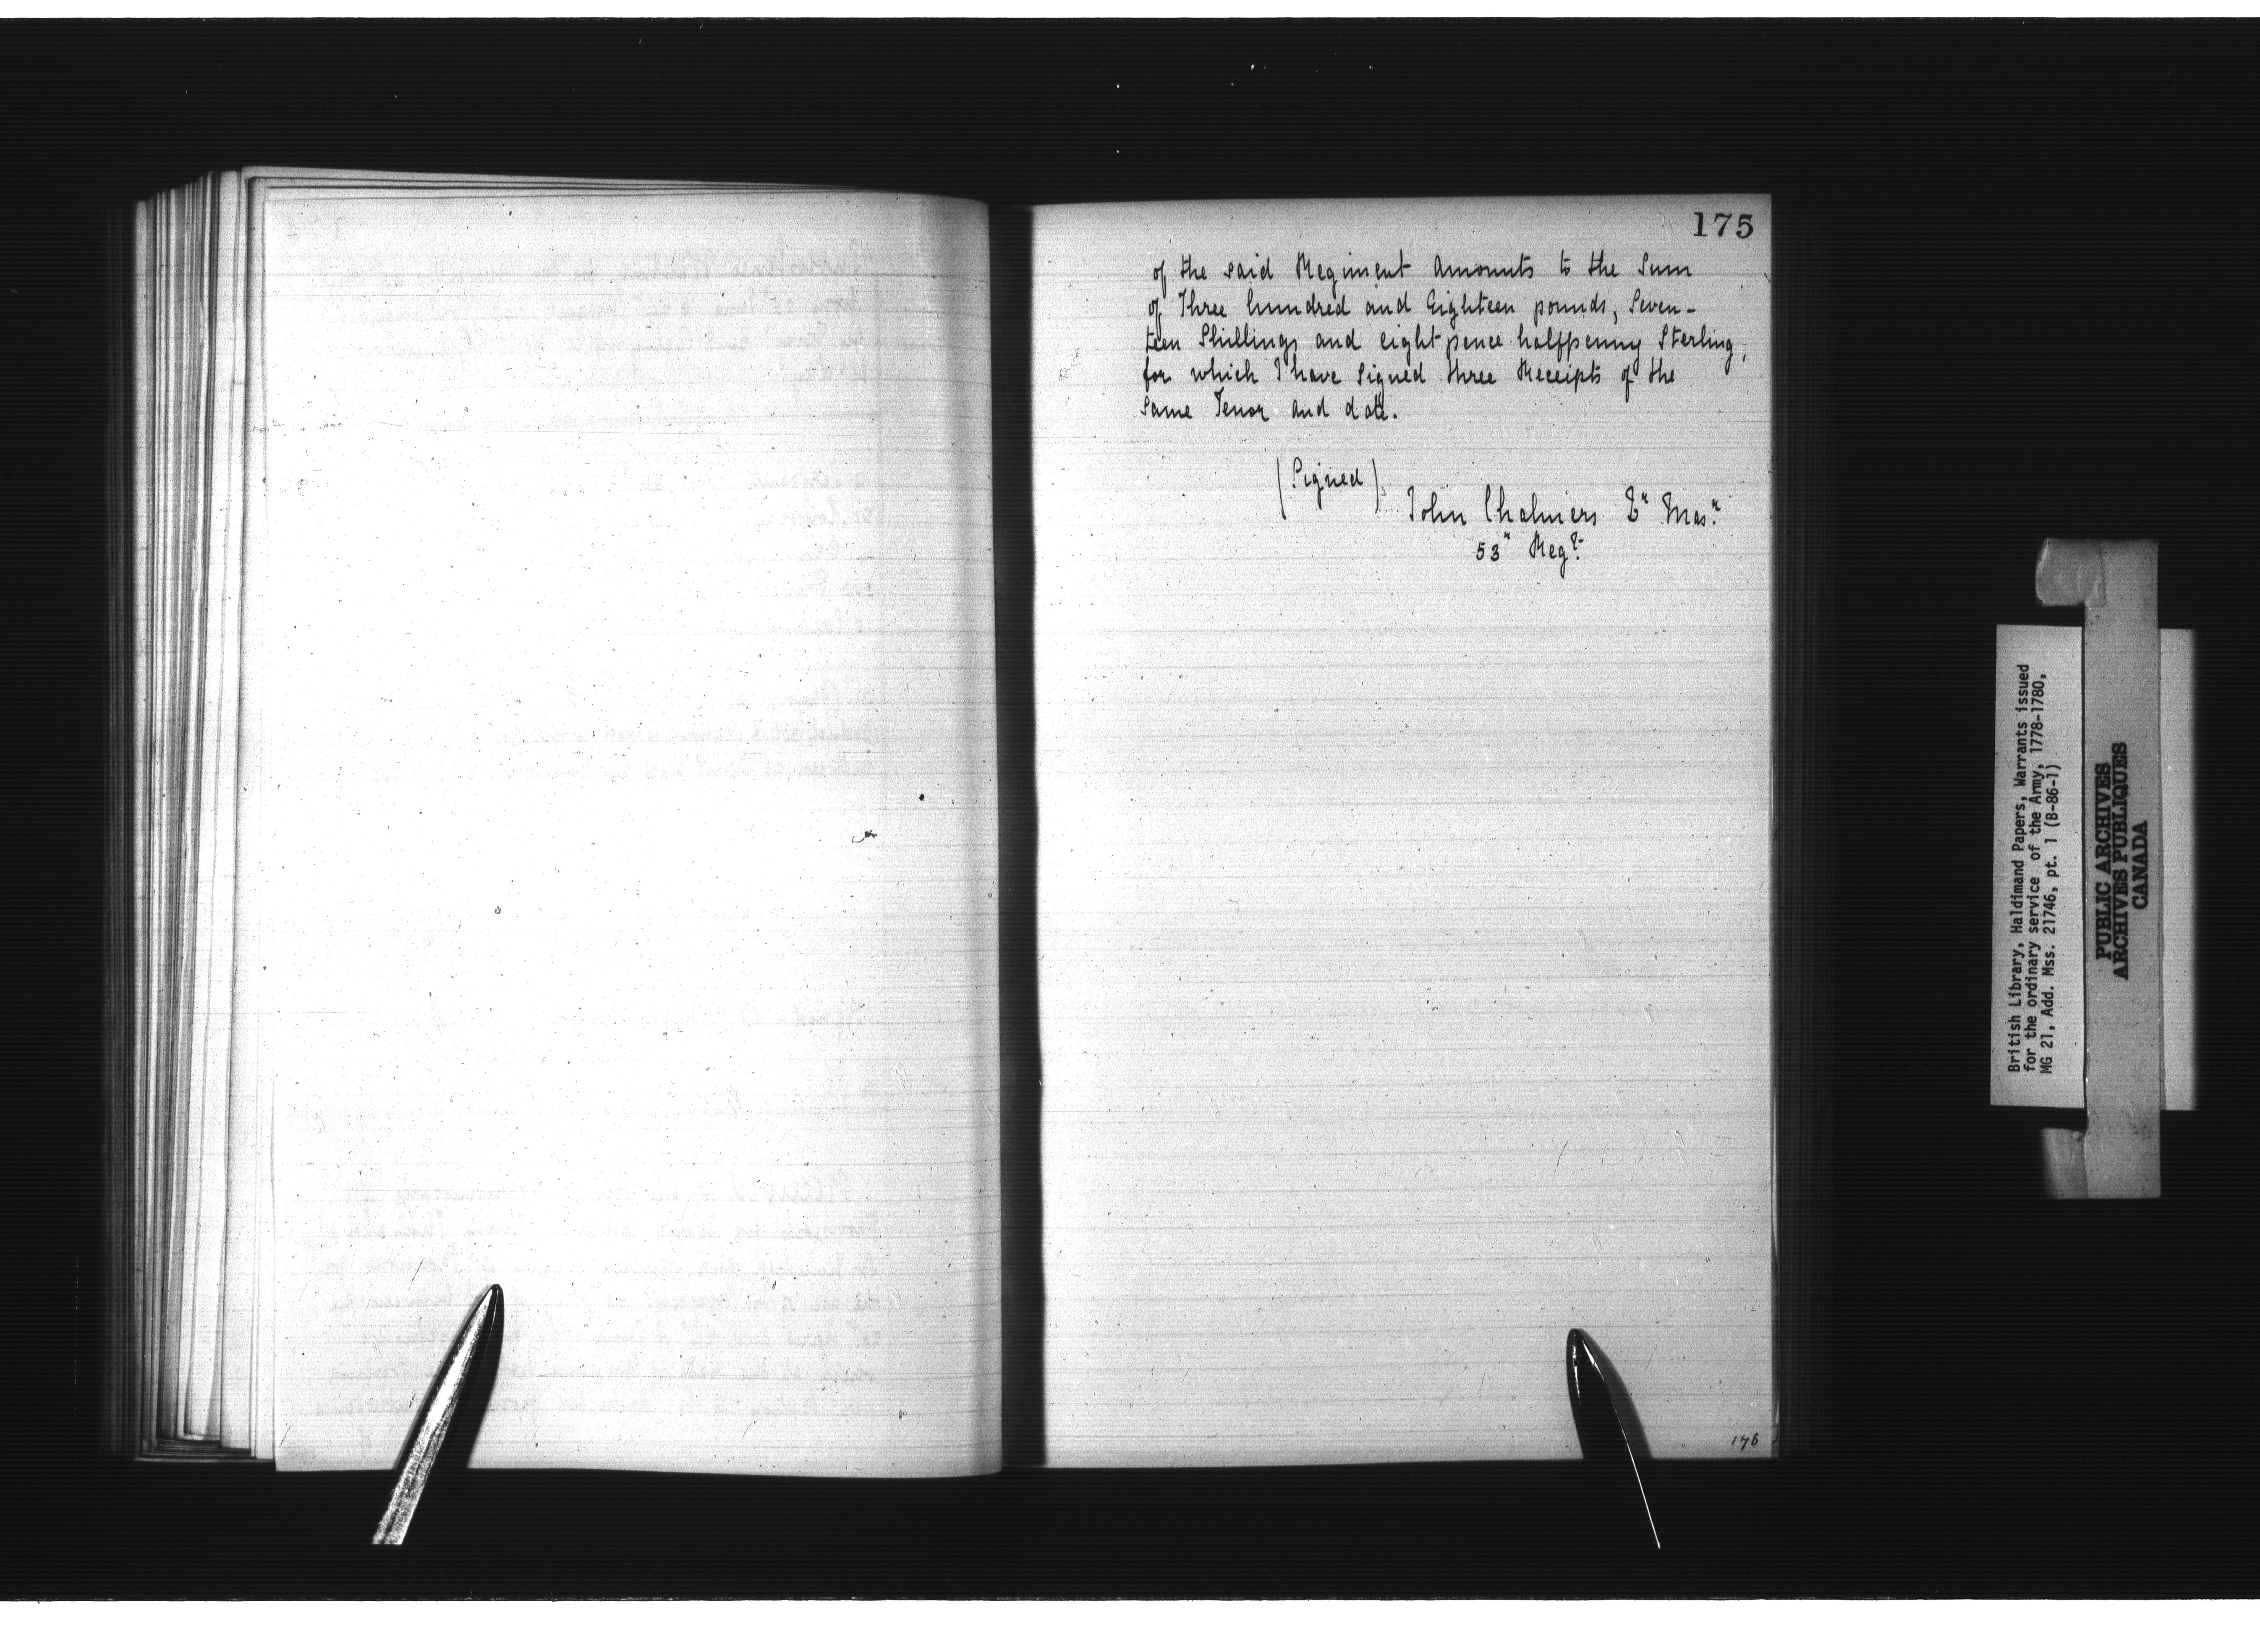 175
of the said Regiment Amounts to the Sum
of Three hundred and Eighteen pounds, Seven-
teen Shillings and eight pence halfpenny Sterling,
for which I have signed three Receipts of the
Same Tenor and date.
(Signed)
John Chalmers Qr Masr
53" Regt
176
British Library, Haldimand Papers, Warrants issued
for the ordinary service of the Army, 1778-1780,
MG 21, Add. Mss. 21746, pt. 1 (B-86-1)
PUBLIC ARCHIVES
ARCHIVES PUBLIQUES
CANADA